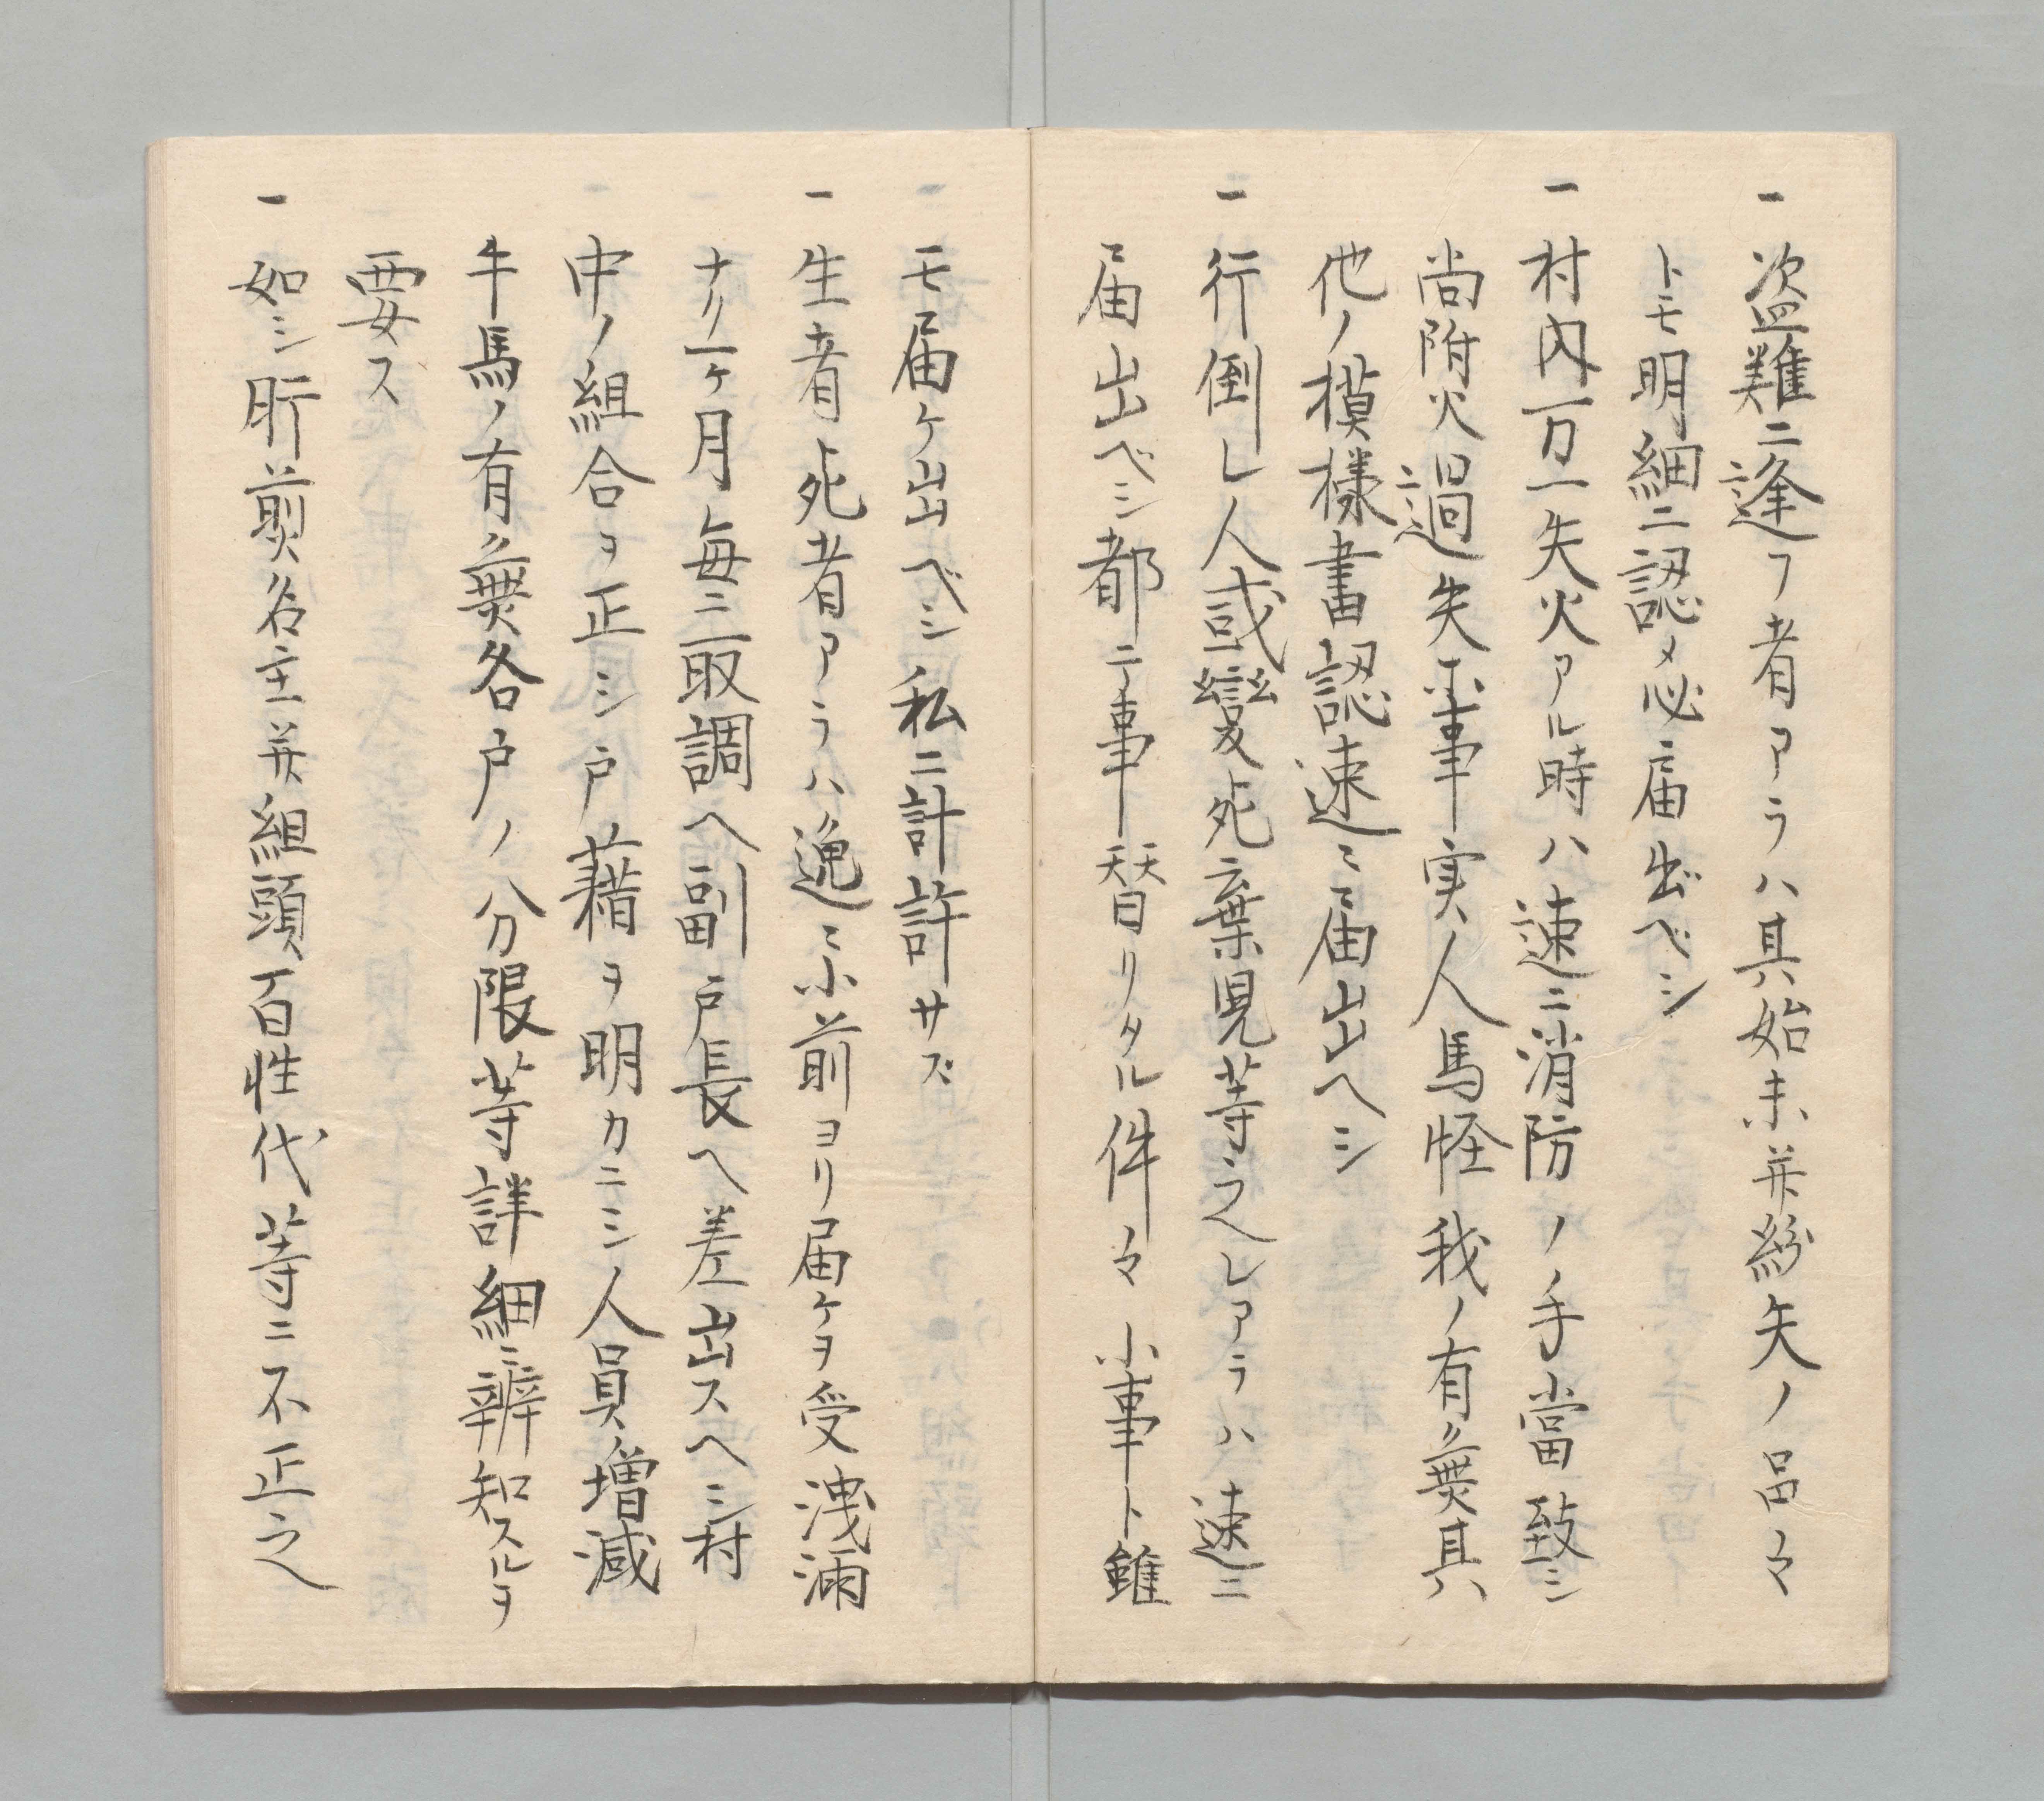 一 盗難ニ逢フ者アラハ其始末并紛失ノ品々
トモ明細ニ認メ必届出ベシ
一 村内万一失火アル時ハ速ニ消防ノ手當致シ
尚附火過失ホ事実人馬怪我ノ有無其
他ノ模様書認速ニ届出ヘシ
一 行倒レ人或變死棄児等之レアラハ速ニ
届出ベシ都テ事替リタル件々小事ト雖
モ届ケ出ベシ私ニ計許サズ
一 生者死者アラハ逸ニ小前ヨリ届ケヲ受洩漏
ナク一ヶ月毎ニ取調ヘ副戸長ヘ差出スヘシ村
中ノ組合ヲ正シ戸籍ヲ明カニシ人員増減
牛馬ノ有無各戸ノ分限等詳細ニ辨知スルヲ
要ス
一 如シ肝煎名主并組頭百姓代等ニ不正之